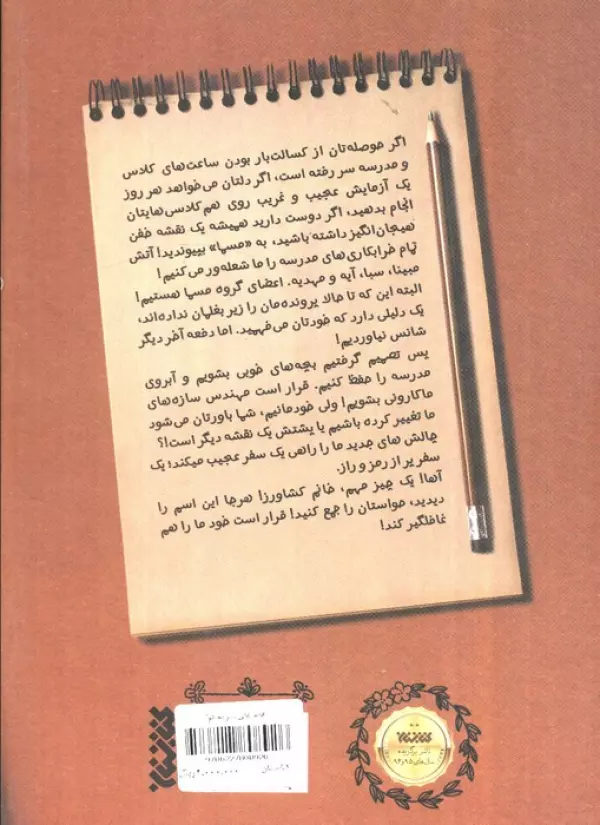 اگر حوصله‌تان از کسالت‌بار بودن ساعت‌های کلاس
و مدرسه سر رفته است، اگر دلتان می‌خواهد هر روز
یک آزمایش عجیب و غریب روی هم‌کلاسی‌هایتان
انجام بدهید، اگر دوست دارید همیشه یک نقشه خفن
هیجان‌انگیز داشته باشید، به «مسپا» بپیوندید! آتش
تمام خرابکاری‌های مدرسه را ما شعله‌ور می‌کنیم!
مبینا، سبا، آیه و مهدیه. اعضای گروه مسپا هستیم!
البته این که تا حالا پرونده‌مان را زیر بغلمان نداده‌اند،
یک دلیلی دارد که خودتان می‌فهمید. اما دفعه آخر دیگر
شانس نیاوردیم!
پس تصمیم گرفتیم بچه‌های خوبی بشویم و آبروی
مدرسه را حفظ کنیم. قرار است مهندس سازه‌های
ماکارونی بشویم! ولی خودمانیم، شما باورتان می‌شود
ما تغییر کرده باشیم یا پشتش یک نقشه دیگر است!؟
چالش های جدید ما را راهی یک سفر عجیب میکند؛ یک
سفر پر از رمز و راز.
آها! یک چیز مهم، خانم کشاورز! هرجا این اسم را
دیدید، حواستان را جمع کنید! قرار است خود ما را هم
غافلگیر کند!
ناشر برگزیده